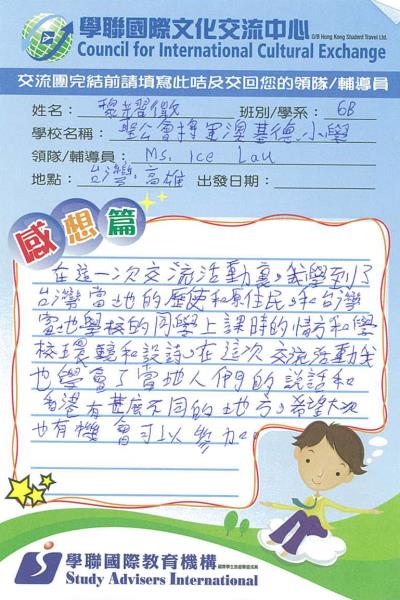 學聯國際文化交流中心
O/B Hong Kong Student Travel Ltd.
Council for International Cultural Exchange
交流團完結前請填寫此咭及交回您的領隊/輔導員
姓名： 黎 班別/學系： 6B
學校名稱： 聖公會 澳基德小學
領隊/輔導員： Ms. Ice Lau
地點： 台灣，高雄 出發日期：
感想篇
在這一次交流活動裏，我學到了
台灣當地的歷史和原住民，和台灣
當地學校的同學上課時的情 和學
校環 和設 。在這次交流活動我
也學會了當地人們的說話和
香港有甚麼不同的地方。希望 次
也有機會可以參加。
學聯國際教育機構
Study Advisers International